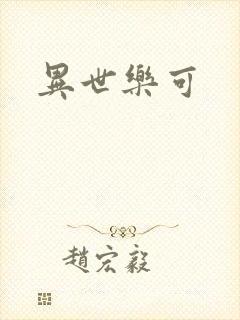 異世樂可
趙宏毅